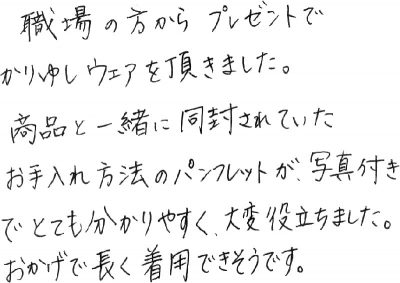 職場の方からプレゼントで
かりゆしウェアを頂きました。
商品と一緒に同封されていた
お手入れ方法のパンフレットが、写真付き
でとても分かりやすく、大変役立ちました。
おかげで長く着用できそうです。